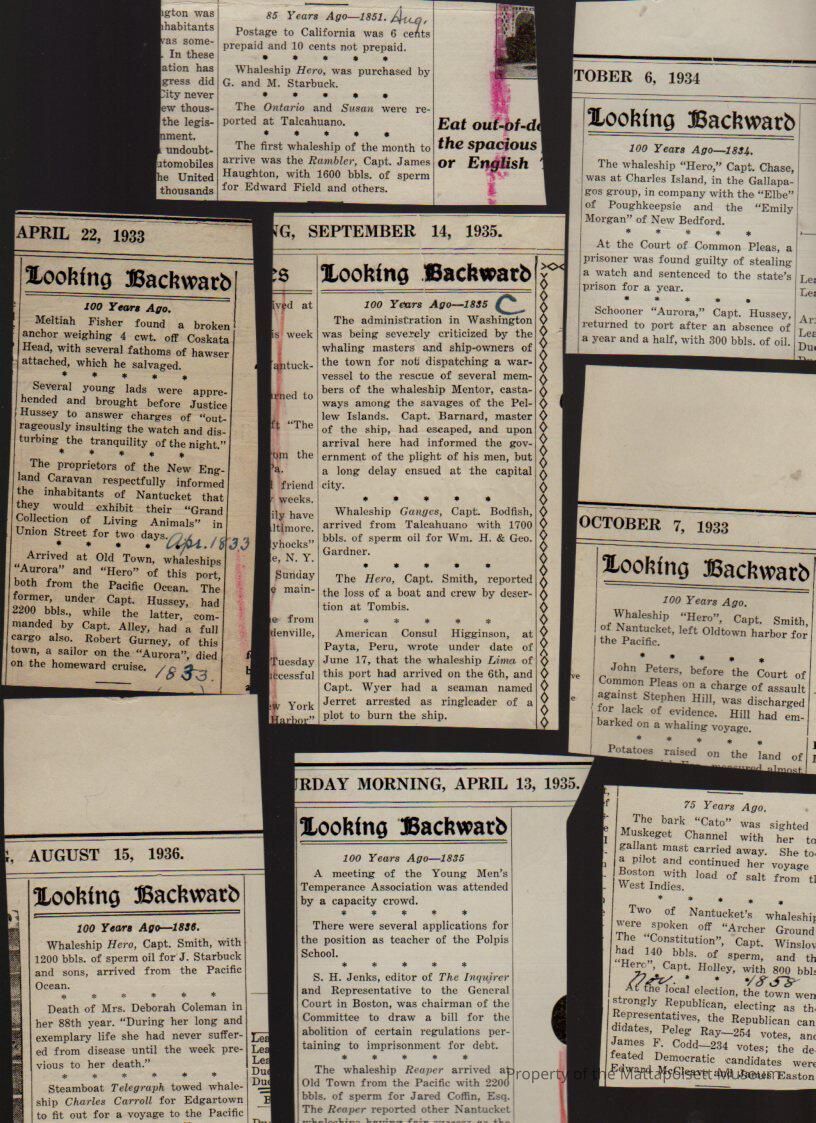 ngton was
nhabitants
was some-
. In these
ation has
gress did
City never
ew thous-
the legis-
nment.
undoubt-
utomobiles
he United
thousands
85 Years Ago—1851. Aug.
Postage to California was 6 cents
prepaid and 10 cents not prepaid.
* * * * *
Whaleship Hero, was purchased by
G. and M. Starbuck.
* * * * *
The Ontario and Susan were re-
ported at Talcahuano.
* * * * *
The first whaleship of the month to
arrive was the Rambler, Capt. James
Haughton, with 1600 bbls. of sperm
for Edward Field and others.
Eat out-of-do
the spacious
or English
TOBER 6, 1934
Looking Backward
100 Years Ago—1834.
The whaleship "Hero," Capt. Chase,
was at Charles Island, in the Gallapa-
gos group, in company with the "Elbe"
of Poughkeepsie and the "Emily
Morgan" of New Bedford.
* * * * *
At the Court of Common Pleas, a
prisoner was found guilty of stealing
a watch and sentenced to the state's
prison for a year.
* * * * *
Schooner "Aurora," Capt. Hussey,
returned to port after an absence of
a year and a half, with 300 bbls. of oil.
Lea
Lea
Ar
Lea
Du
APRIL 22, 1933
Looking Backward
100 Years Ago.
Meltiah Fisher found a broken
anchor weighing 4 cwt. off Coskata
Head, with several fathoms of hawser
attached, which he salvaged.
* * * * *
Several young lads were appre-
hended and brought before Justice
Hussey to answer charges of "out-
rageously insulting the watch and dis-
turbing the tranquility of the night."
* * * * *
The proprietors of the New Eng-
land Caravan respectfully informed
the inhabitants of Nantucket that
they would exhibit their "Grand
Collection of Living Animals" in
Union Street for two days.
* * * * * Apr. 1833
Arrived at Old Town, whaleships
"Aurora" and "Hero" of this port,
both from the Pacific Ocean. The
former, under Capt. Hussey, had
2200 bbls., while the latter, com-
manded by Capt. Alley, had a full
cargo also. Robert Gurney, of this
town, a sailor on the "Aurora", died
on the homeward cruise. 1833.
NG, SEPTEMBER 14, 1935.
es
ived at
is week
antuck-
rned to
ft "The
om the
a.
friend
weeks.
ily have
ltimore.
yhocks"
e, N. Y.
Sunday
main-
e from
denville,
Tuesday
ccessful
w York
Harbor"
Looking Backward
100 Years Ago—1835 C
The administration in Washington
was being severely criticized by the
whaling masters and ship-owners of
the town for not dispatching a war-
vessel to the rescue of several mem-
bers of the whaleship Mentor, casta-
ways among the savages of the Pel-
lew Islands. Capt. Barnard, master
of the ship, had escaped, and upon
arrival here had informed the gov-
ernment of the plight of his men, but
a long delay ensued at the capital
city.
* * * * *
Whaleship Ganges, Capt. Bodfish,
arrived from Talcahuano with 1700
bbls. of sperm oil for Wm. H. & Geo.
Gardner.
* * * * *
The Hero, Capt. Smith, reported
the loss of a boat and crew by deser-
tion at Tombis.
* * * * *
American Consul Higginson, at
Payta, Peru, wrote under date of
June 17, that the whaleship Lima of
this port had arrived on the 6th, and
Capt. Wyer had a seaman named
Jerret arrested as ringleader of a
plot to burn the ship.
OCTOBER 7, 1933
Looking Backward
100 Years Ago.
Whaleship "Hero", Capt. Smith,
of Nantucket, left Oldtown harbor for
the Pacific.
* * * *
John Peters, before the Court of
Common Pleas on a charge of assault
against Stephen Hill, was discharged
for lack of evidence. Hill had em-
barked on a whaling voyage.
* * * * *
Potatoes raised on the land of
measured almost
, AUGUST 15, 1936.
Looking Backward
100 Years Ago—1836.
Whaleship Hero, Capt. Smith, with
1200 bbls. of sperm oil for J. Starbuck
and sons, arrived from the Pacific
Ocean.
* * * * *
Death of Mrs. Deborah Coleman in
her 88th year. "During her long and
exemplary life she had never suffer-
ed from disease until the week pre-
vious to her death."
* * * * *
Steamboat Telegraph towed whale-
ship Charles Carroll for Edgartown
to fit out for a voyage to the Pacific
Lea
Lea
Lea
Due
Due
B
URDAY MORNING, APRIL 13, 1935.
Looking Backward
100 Years Ago—1835
A meeting of the Young Men's
Temperance Association was attended
by a capacity crowd.
* * * * *
There were several applications for
the position as teacher of the Polpis
School.
* * * * *
S. H. Jenks, editor of The Inquirer
and Representative to the General
Court in Boston, was chairman of the
Committee to draw a bill for the
abolition of certain regulations per-
taining to imprisonment for debt.
* * * * *
The whaleship Reaper arrived at
Old Town from the Pacific with 2200
bbls. of sperm for Jared Coffin, Esq.
The Reaper reported other Nantucket
whaleships having fair success as the
75 Years Ago.
The bark "Cato" was sighted
Muskeget Channel with her to
gallant mast carried away. She to
a pilot and continued her voyage
Boston with load of salt from t
West Indies.
* * * * *
Two of Nantucket's whaleship
were spoken off "Archer Ground
The "Constitution", Capt. Winslow
had 140 bbls. of sperm, and th
"Hero", Capt. Holley, with 800 bbls
Nov. * * 1858
At the local election, the town wen
strongly Republican, electing as th
Representatives, the Republican can
didates, Peleg Ray—254 votes, and
James F. Codd—234 votes; the de-
feated Democratic candidates were
Edward McCleave and James Easton
Property of the Mattapoisett Museum